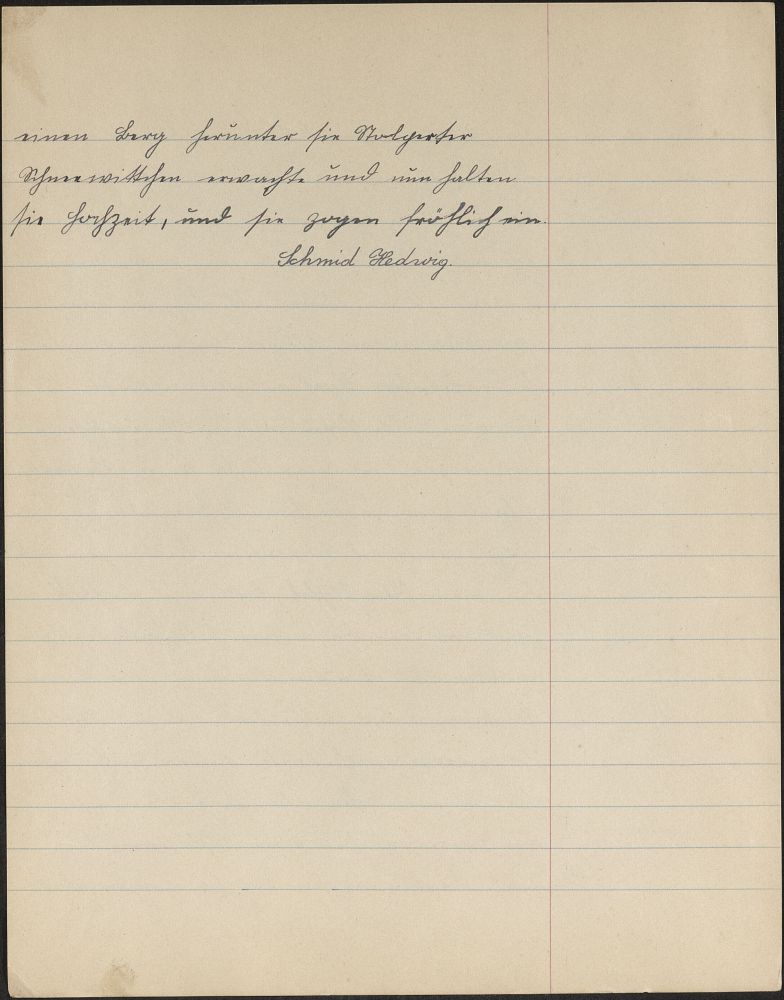 einen Berg herunter sie Stolperter
Schneewittchen erwachte und nun halten
sie Hochzeit, und sie zogen fröhlich ein.
Schmid Hedwig.